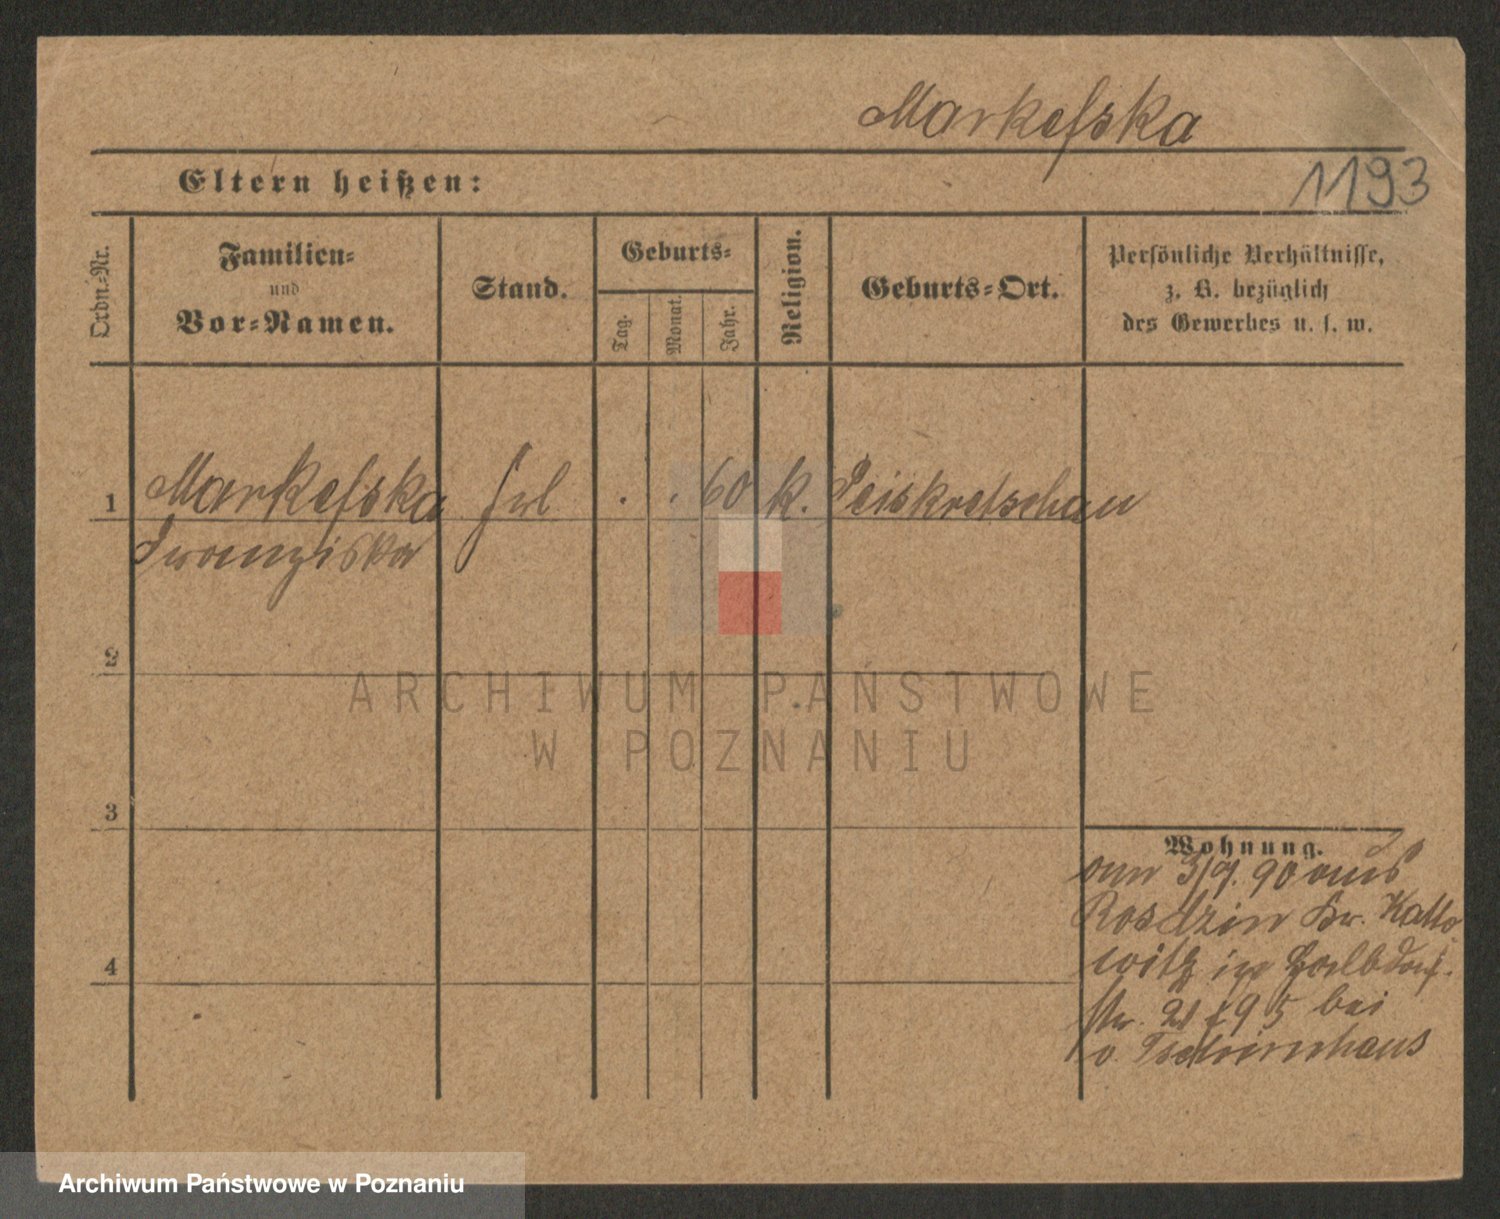 Markefska
Eltern heißen:
1193
Ordn.-Nr.
Familien-
und
Vor-Namen.
Stand.
Geburts-
Tag.
Monat.
Jahr.
Religion.
Geburts-Ort.
Persönliche Verhältnisse,
z. B. bezüglich
des Gewerbes u. s. w.
1 Markefska Frl . . 60 k. Peiskretschau
Franziska
2
3
4
Wohnung.
am 3/9. 90 aus
Rosdzin Kr. Katto
witz in Halbdorf-
str. 21 bei
v. Tschirnhaus
ARCHIWUM PAŃSTWOWE
W POZNANIU
Archiwum Państwowe w Poznaniu